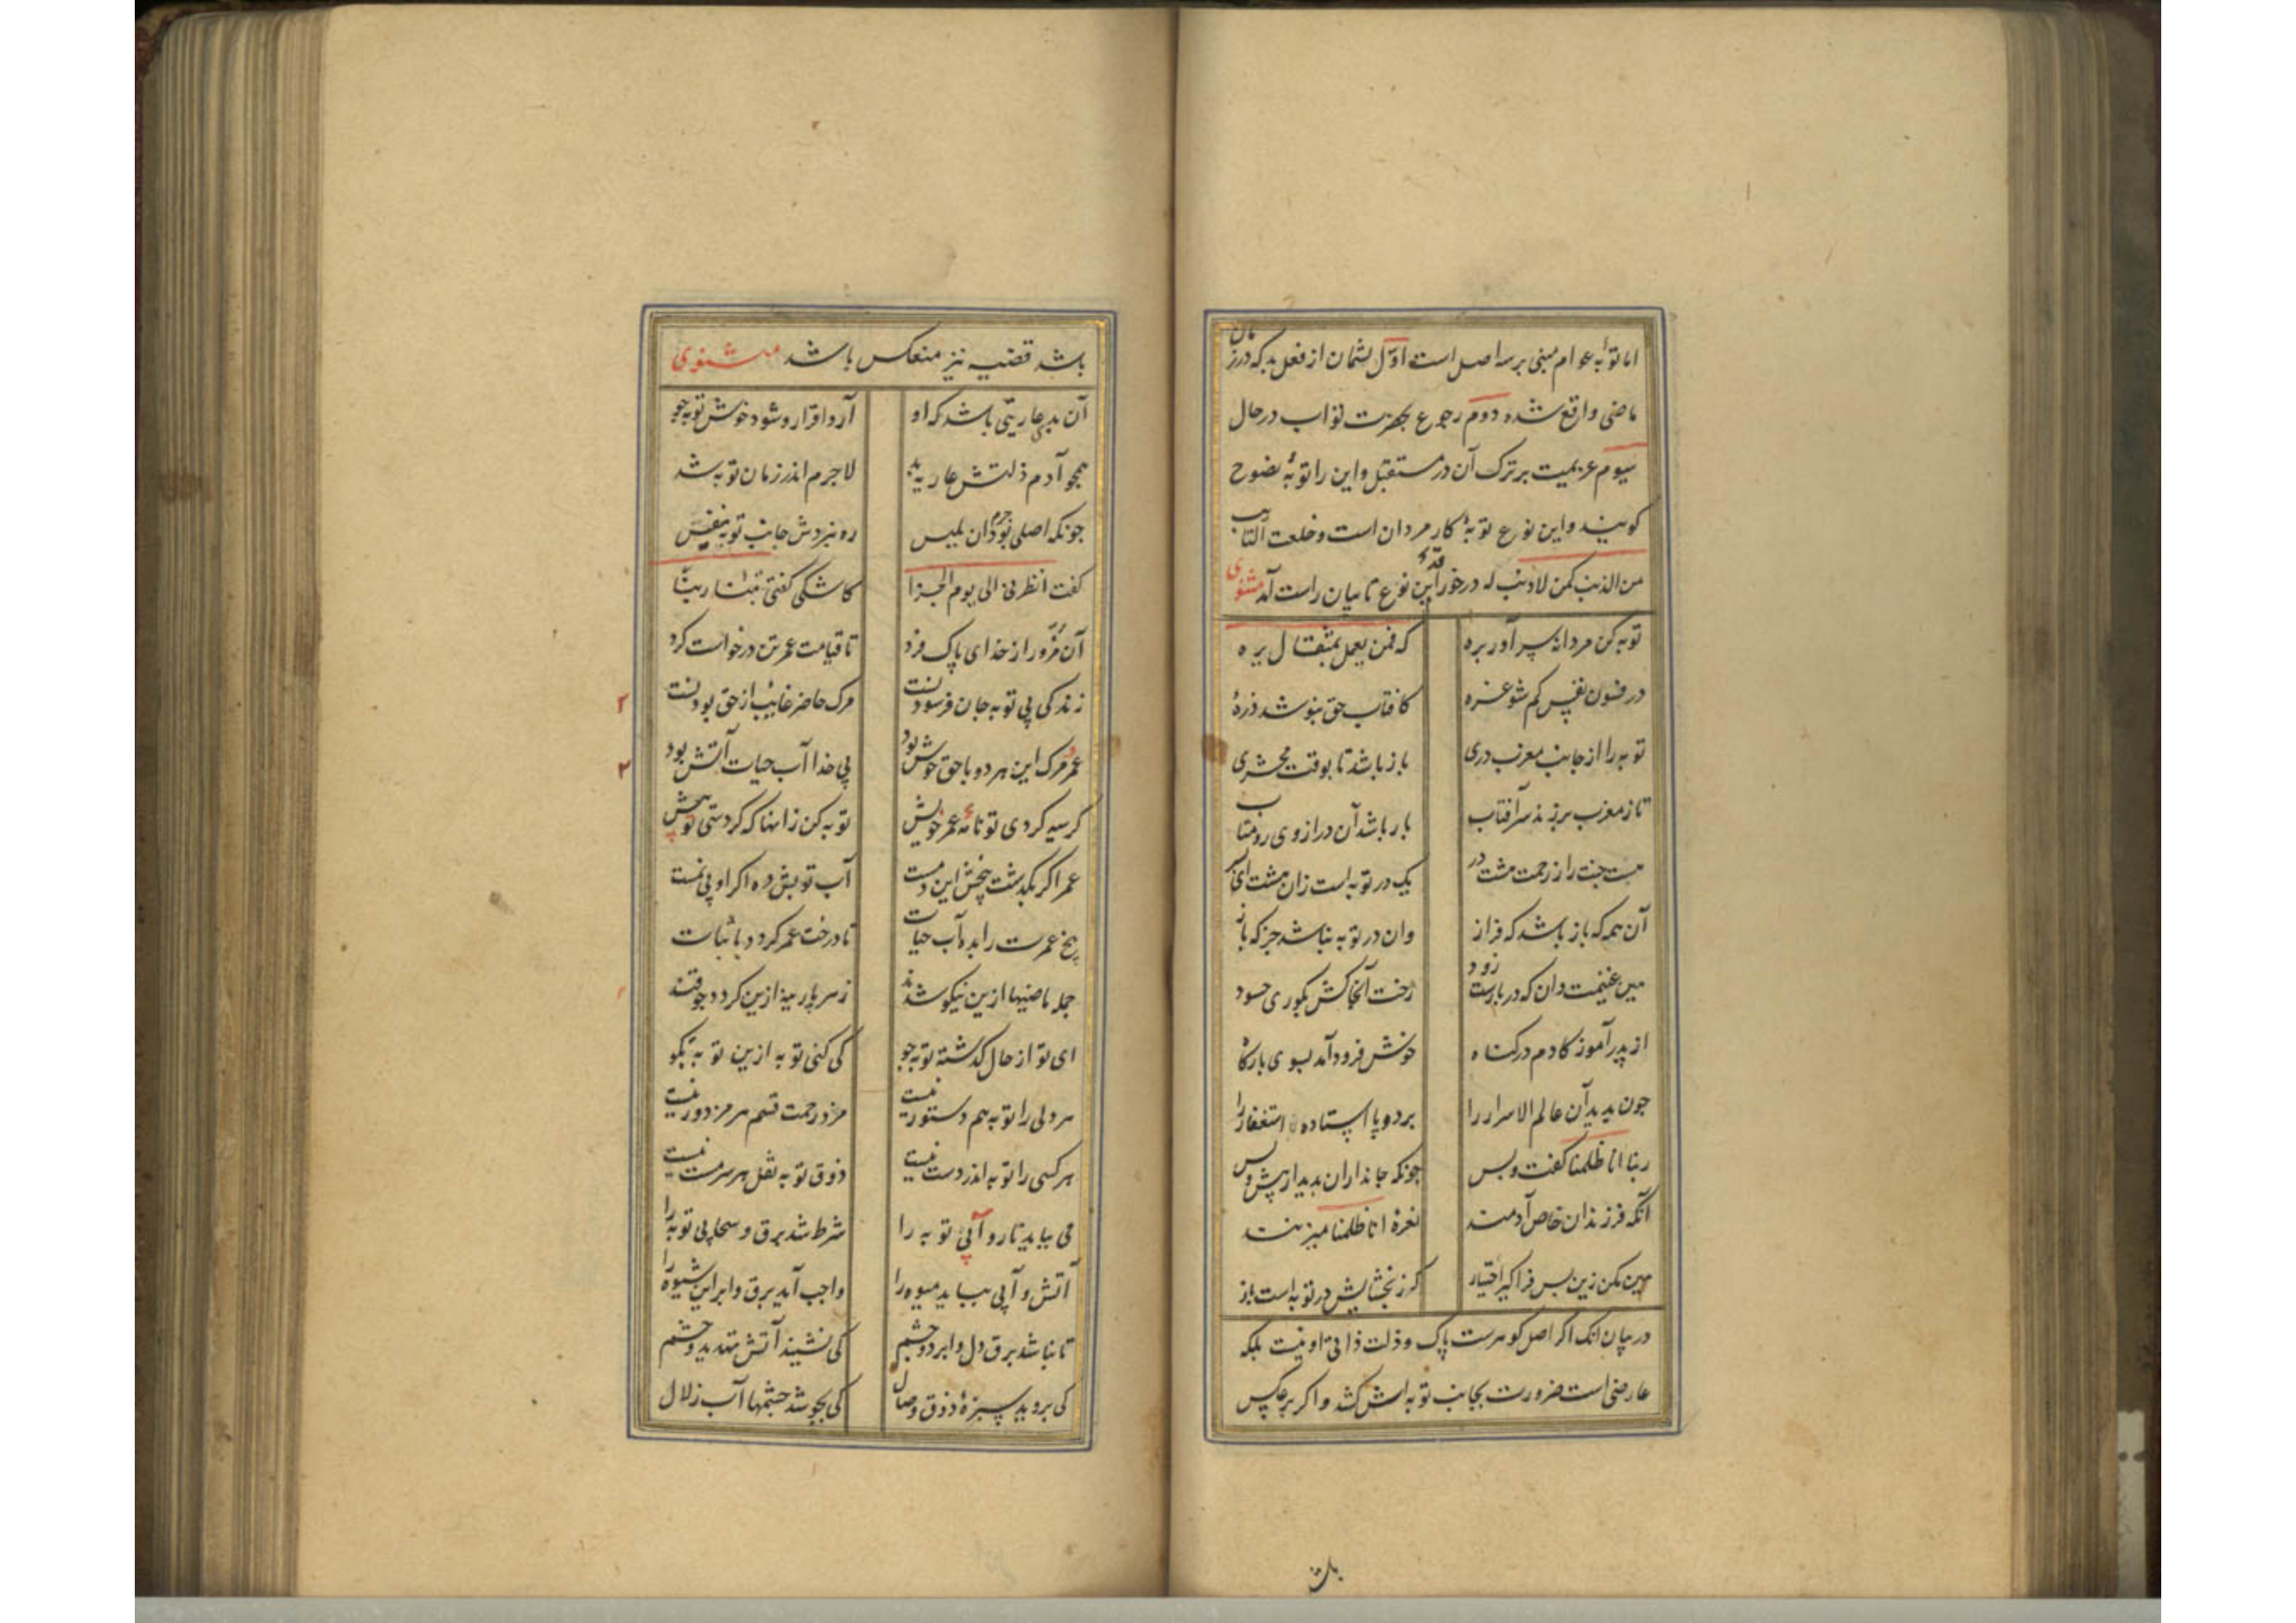 اما توبهٔ عوام مبنی بر سه اصل است اول پشمان از فعل بد که در زمان
ماضی واقع شده دوم رجوع بحضرت تواب در حال
سیوم عزیمیت بر ترک آن در مستقبل و این را توبهٔ نصوح
کویند و این نوع توبهٔ کار مردان است و خلعت التایب
من الذنب کمن لا ذنب له در خور قد این نوع تایبان راست آمد مثنوی
توبه کن مردانه سر آور بره که فمن یعمل بمثقال یره
در فسون نفس کم شو غره کافتاب حق نپوشد ذرهٔ
توبه را از جانب مغرب دری باز باشد تا بوقت محشری
تا ز مغرب بر زند سر آفتاب باز باشد آن در از وی رو متاب
هست جنت را ز رحمت هشت در یک در توبه است زان هشت ای
آن همه که باز باشد که فراز وان در توبه نباشد جز که باز
هین غنیمت دان که در بازست زود رخت آنجا کش بکوری حسود
از پدر آموز کادم در کناه خوش فرود آمد بسوی بارکاه
چون بدید آن عالم الاسرار را بر دو پا استاده استغفار را
ربنا انا ظلمنا کفت و بس چونکه جانداران بدید از پیش و پس
آنکه فرزندان خاص آدمند نعرهٔ انا ظلمنا میزنند
هین مکن زین پس فرا کیر احتیاز که ز بخشایش در توبه است باز
در بیان انک اکر اصل کوهرست پاک و ذلت ذاتی او نیست بلکه
عارضی است ضرورت بجانب توبه اش کشد و اکر بر عکس
باشد قضیه نیز منعکس باشد مثنوی
آن بد عاریتی باشد که او آرد اقرار و شود خوش توبه جو
همچو آدم ذلتش عاریه بد لاجرم اندر زمان توبه شد
چونکه اصلی بود جرم آن بلیس ره نبردش جانب توبه نفیس
کفت انظرنی الی یوم الجزا کاشکی کفتی تبنا ربنا
آن مزور از خدای پاک فرد تا قیامت عمر تن درخواست کرد
زندکی بی توبه جان فرسودنست مرک حاضر غایب از حق بودنست
عمر و مرک این هر دو با حق خوش بود بی خدا آب حیات آتش بود
۲
کر سیه کردی تو نامهٔ عمر خویش توبه کن زانها که کردستی تو پیش
۲
عمر اکر بکذشت بیخش این دمست آب توبش ده اکر او بی نمست
بیخ عمرت را بده آب حیات تا درخت عمر کردد با ثبات
جمله ماضیها ازین نیکو شدند زهر پارینه ازین کردد چو قند
ای تو از حال کذشته توبه جو کی کنی توبه ازین توبه بکو
هر دلی را توبه هم دستور نیست مزد رحمت قسم هر مزدور نیست
هر کسی را توبه اندر دست نیست ذوق توبه نقل هر سرمست نیست
می بباید تاب و آبی توبه را شرط شد برق و سحابی توبه را
آتش و آبی بباید میوه را واجب آید برق و ابر این شیوه را
تا نباشد برق دل و ابر دو چشم کی نشیند آتش تهدید و خشم
کی بروید سبزهٔ ذوق وصال کی بجوشد چشمها آب زلال